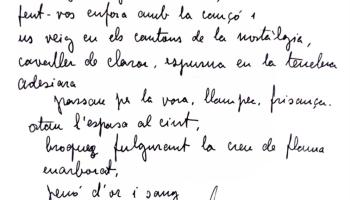 fent-vos enfora amb la cançó i
us veig en els cantons de la nostàlgia,
cavaller de claror, espurna en la tenebra
adesiara
passau per la vora, llampec, frisança.
l'espasa al cint,
fulgurant la creu de flama
enarborat,
penó d'or i sang